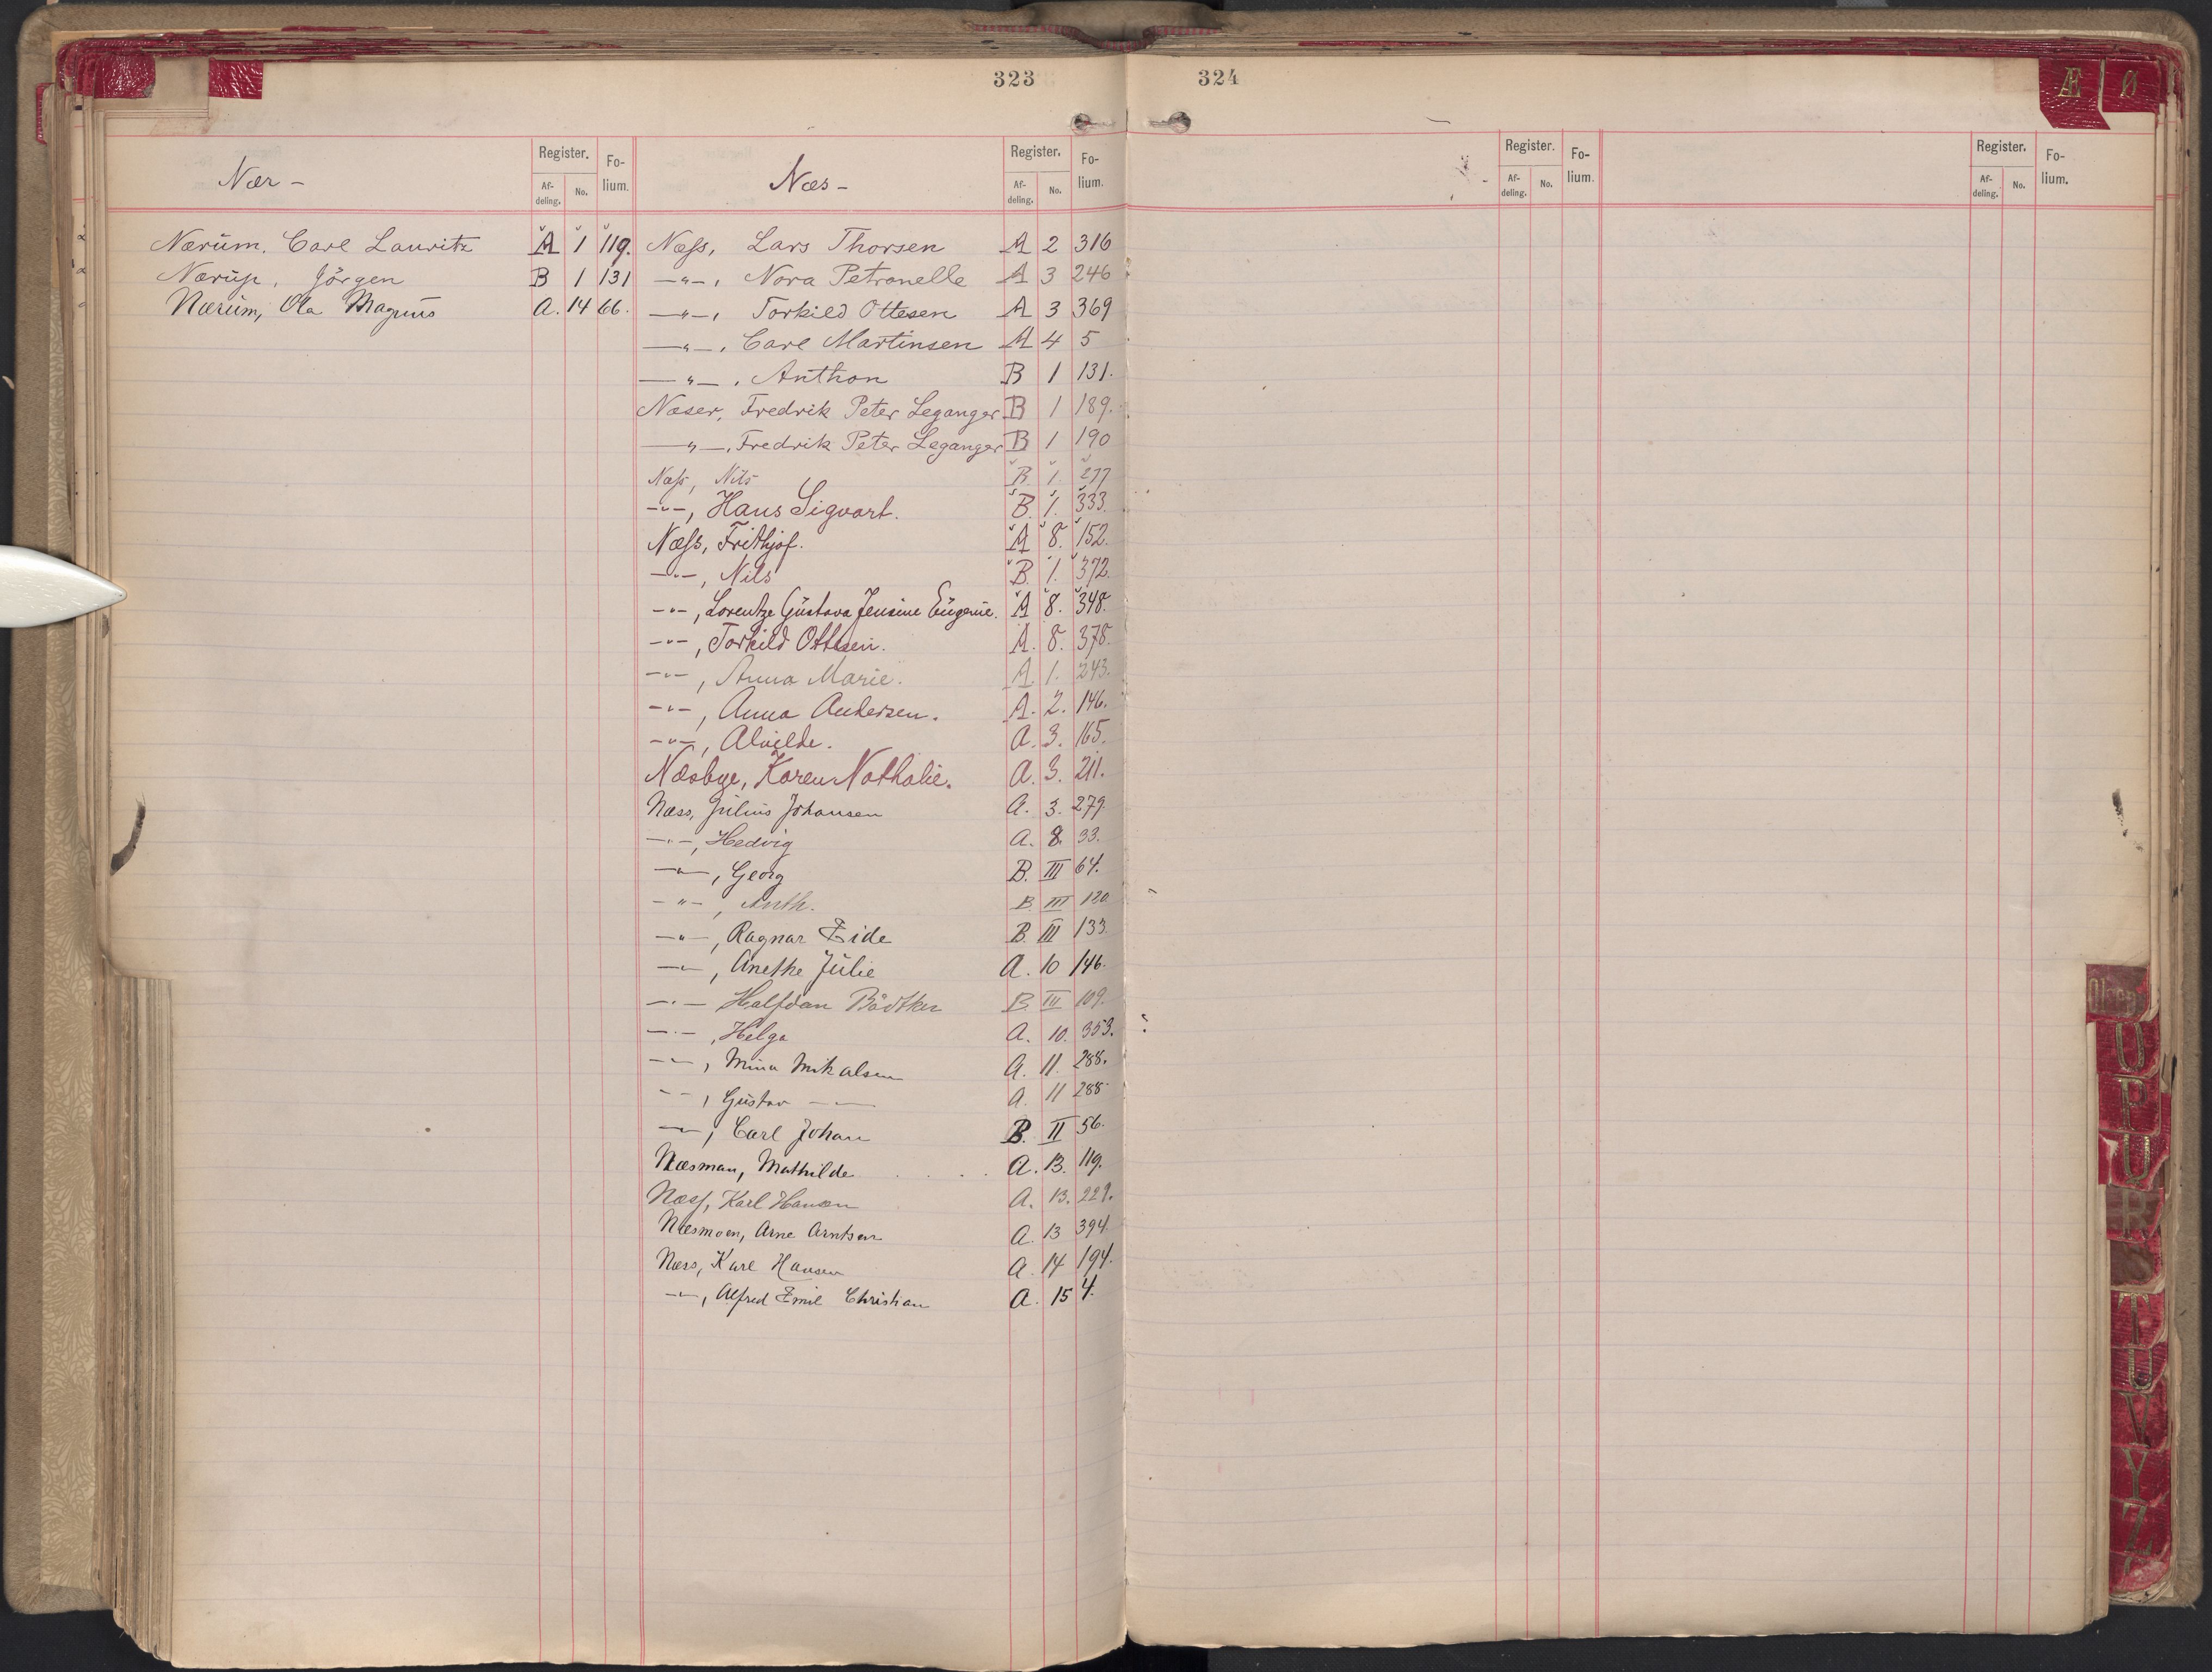 323
Nær -
Register. Fo-lium.
Af-deling. No.
Nærum, Carl Lauritz A 1 119.
Nærup, Jörgen B 1 131
Nærum, Ola Magnus A. 14 66.
Næs -
Register. Fo-lium.
Af-deling. No.
Næss, Lars Thorsen A 2 316
—"—, Nora Petronelle A 3 246
—"—, Torkild Ottesen A 3 369
—"—, Carl Martinsen A 4 5
—"—, Anthon B 1 131.
Næser, Fredrik Peter Leganger B 1 189.
—"—, Fredrik Peter Leganger B 1 190
Næss, Nils B. 1. 277
-"-, Hans Sigvart. B. 1. 333.
Næss, Frithjof. A 8. 152.
-"-, Nils B. 1. 372.
-"-, Lorentze Gustava Jensine Eugenie. A 8. 348.
-"-, Torkild Ottesen. A. 8. 378.
-"-, Anna Marie. A. 1. 243.
-"-, Anna Andersen. A. 2. 146.
-"-, Alvilde. A. 3. 165.
Næsbye, Karen Nathalie. A. 3. 211.
Næss, Julius Johansen A. 3. 279.
-"-, Hedvig A. 8. 33.
-"-, Georg B. III 64.
-"-, Anth. B. III 120
-"-, Ragnar Eide B. III 133.
-"-, Anethe Julie A. 10 146.
-"- Halfdan Bödtker B. III 109.
-"-, Helga A. 10. 353.
-"-, Mina Mikalsen A. 11. 288.
-"-, Gustav -"- A. 11 288
-"-, Carl Johan B. II 56.
Næsman, Mathilde . . . . A. 13. 119.
Næss, Karl Hansen A. 13. 229.
Næsmoen, Arne Arntsen A. 13 394.
Næss, Karl Hansen A. 14 194.
-"-, Alfred Emil Christian A. 15 4.
324
Register. Fo-lium.
Af-deling. No.
Register. Fo-lium.
Af-deling. No.
Æ Ø
Olsen
O
P
U
R
T
U
V
Y
Z